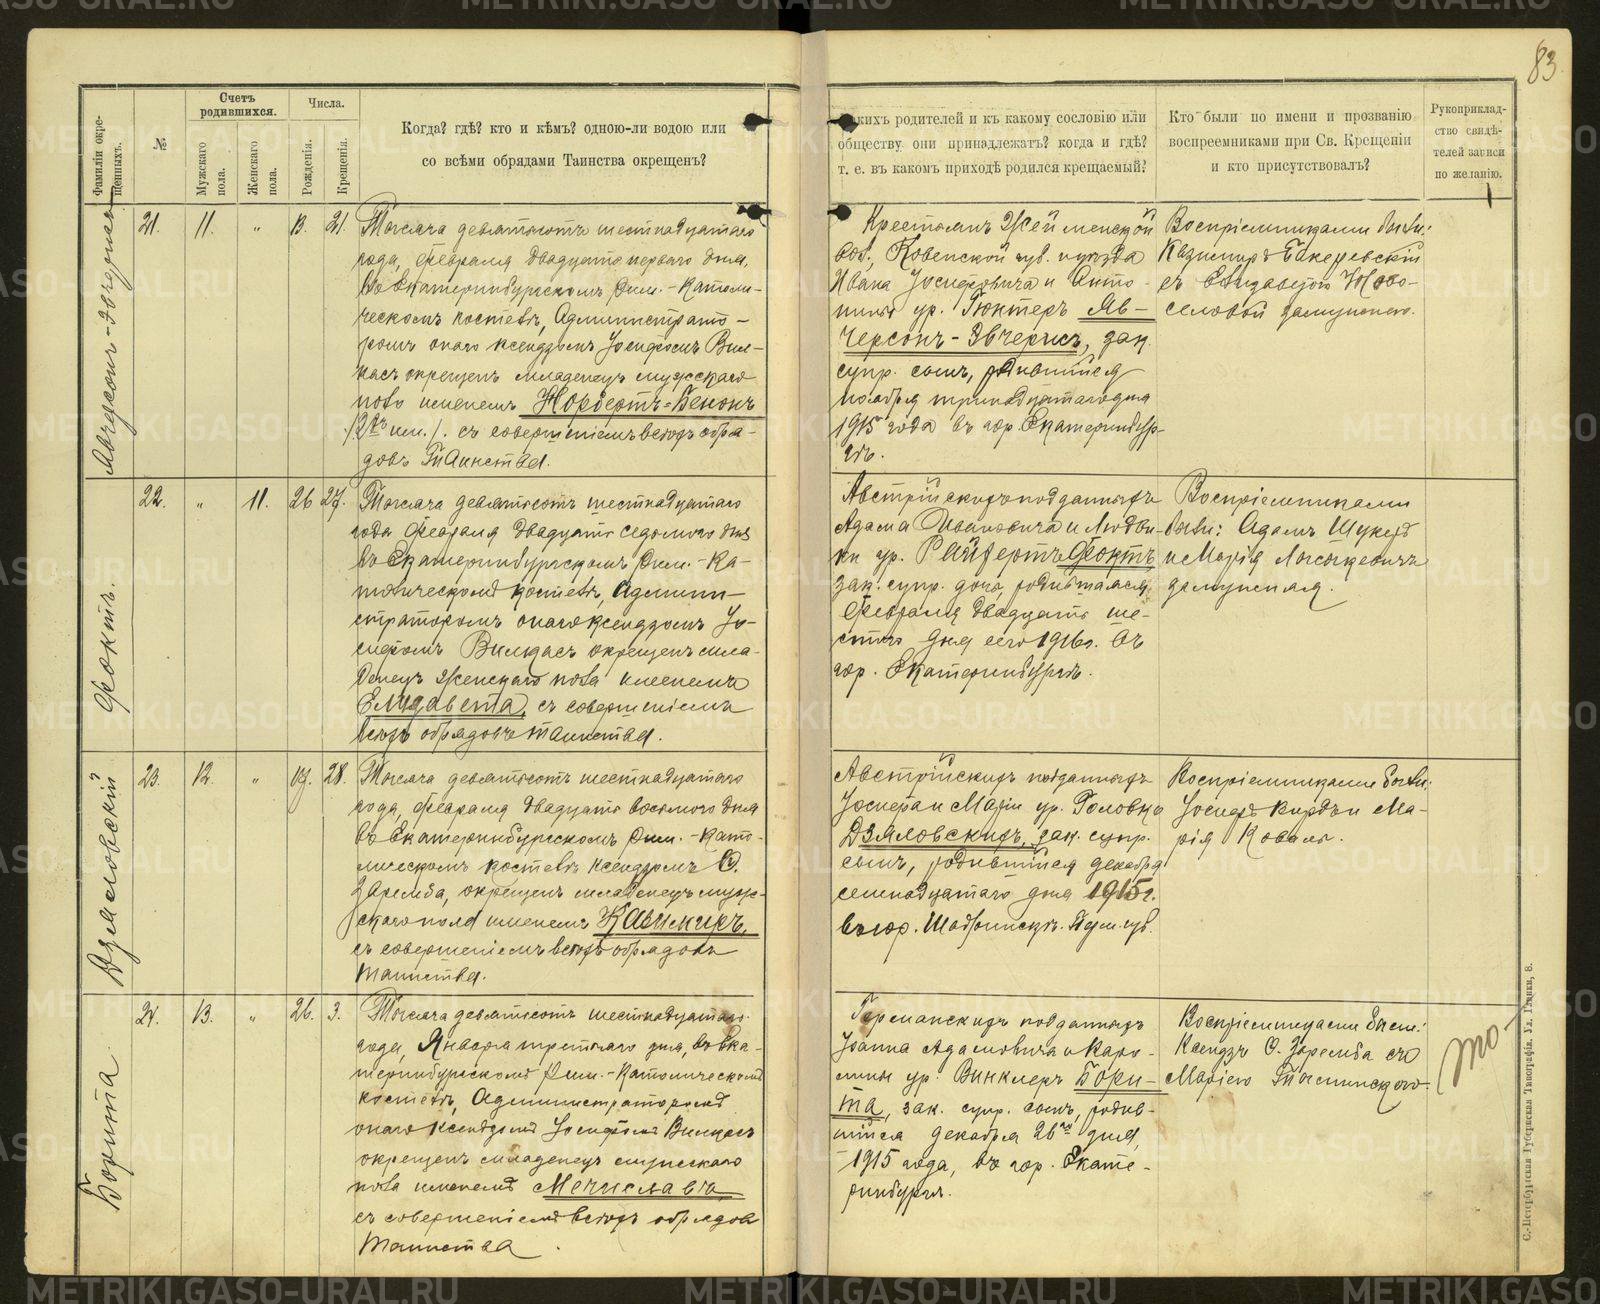 83
Фамиліи окрещенныхъ.
№
Счетъ родившихся.
Мужскаго пола.
Женскаго пола.
Числа.
Рожденія.
Крещенія.
Когда? гдѣ? кто и кѣмъ? одною-ли водою или
со всѣми обрядами Таинства окрещенъ?
какихъ родителей и къ какому сословію или
обществу они принадлежатъ? когда и гдѣ?
т. е. въ какомъ приходѣ родился крещаемый?
Кто были по имени и прозванію
воспреемниками при Св. Крещеніи
и кто присутствовалъ?
Рукоприклад-
ство свидѣ-
телей записи
по желанію.
21.
11.
"
13.
21.
Тысяча девятьсотъ шестнадцатаго
года, февраля двадцать перваго дня,
въ Екатеринбургскомъ Рим.-Католи-
ческомъ костелѣ, Администрато-
ромъ онаго ксендзомъ Іосифомъ Вил-
касъ окрещенъ младенецъ мужскаго
пола именемъ Норбертъ=Бенонъ
/2хъ им./. съ совершеніемъ всѣхъ обря-
довъ Таинства.
Крестьянъ Жеймельской
вол., Ковенской губ. и уѣзда
Ивана Іосифовича и Анто-
нины ур. Гюнтеръ Яв-
черсонъ-Эвчерисъ, зак.
супр. сынъ, родившійся
ноября тринадцатаго дня
1915 года въ гор. Екатеринбур-
гѣ.
Воспріемниками были:
Казимиръ
съ Елизаветою Ново-
селовой замужнею.
Фоктъ.
22.
"
11.
26
27.
Тысяча девятьсотъ шестнадцатаго
года февраля двадцать седьмого дня
въ Екатеринбургскомъ Рим.-Ка-
толическомъ костелѣ, Админи-
страторомъ онаго ксендзомъ Іо-
сифомъ Вилкасъ окрещенъ мла-
денецъ женскаго пола именемъ
Елизавета, съ совершеніемъ
всѣхъ обрядовъ таинства.
Австрійскихъ подданныхъ
Адама Ивановича и Людви-
ки ур. Райфертъ Фоктъ
зак. супр. дочь, родившаяся
февраля двадцать ше-
стого дня сего 1916 г. въ
гор. Екатеринбургѣ.
Воспріемниками
были: Адамъ Шукетъ
и Марія
замужняя.
Дзяловскій
23.
12.
"
17.
28.
Тысяча девятьсотъ шестнадцатаго
года, февраля двадцать восьмого дня
въ Екатеринбургскомъ Рим.-Като-
лическомъ костелѣ ксендзомъ О.
Заремба, окрещенъ младенецъ муж-
скаго пола именемъ Казимиръ,
съ совершеніемъ всѣхъ обрядовъ
таинства.
Австрійскихъ подданныхъ
Іосифа и Маріи ур. Головка
Дзяловскихъ, зак. супр.
сынъ, родившійся декабря
семнадцатаго дня 1915 г.
въ гор. Шадринскѣ. Перм. губ.
Воспріемниками были:
Іосифъ Кирдъ и Ма-
рія Коваль.
Борита
24.
13.
"
26.
3.
Тысяча девятьсотъ шестнадцатаго
года, Января третьяго дня, въ Ека-
теринбургскомъ Рим.-Католическомъ
костелѣ, Администраторомъ
онаго ксендзомъ Іосифомъ Вилкасъ
окрещенъ младенецъ мужскаго
пола именемъ Мечиславъ,
съ совершеніемъ всѣхъ обрядовъ
таинства.
Германскихъ подданныхъ
Іоанна Адамовича и Каро-
лины ур. Винклеръ Бори-
та, зак. супр. сынъ, родив-
шійся декабря 26го дня,
1915 года, въ гор. Екате-
ринбургѣ.
Воспріемниками были:
Ксендзъ О. Заремба съ
Маріею
С.-Петербургская Губернская Типографія.
METRIKI.GASO-URAL.RU